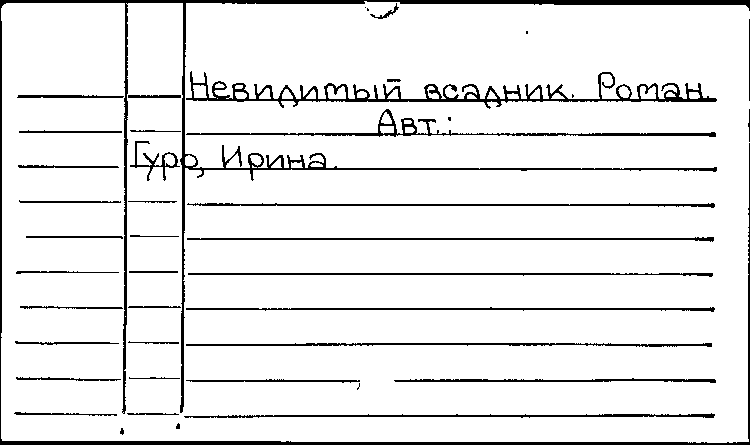 Невидимый всадник. Роман.
Авт.:
Гуро, Ирина.